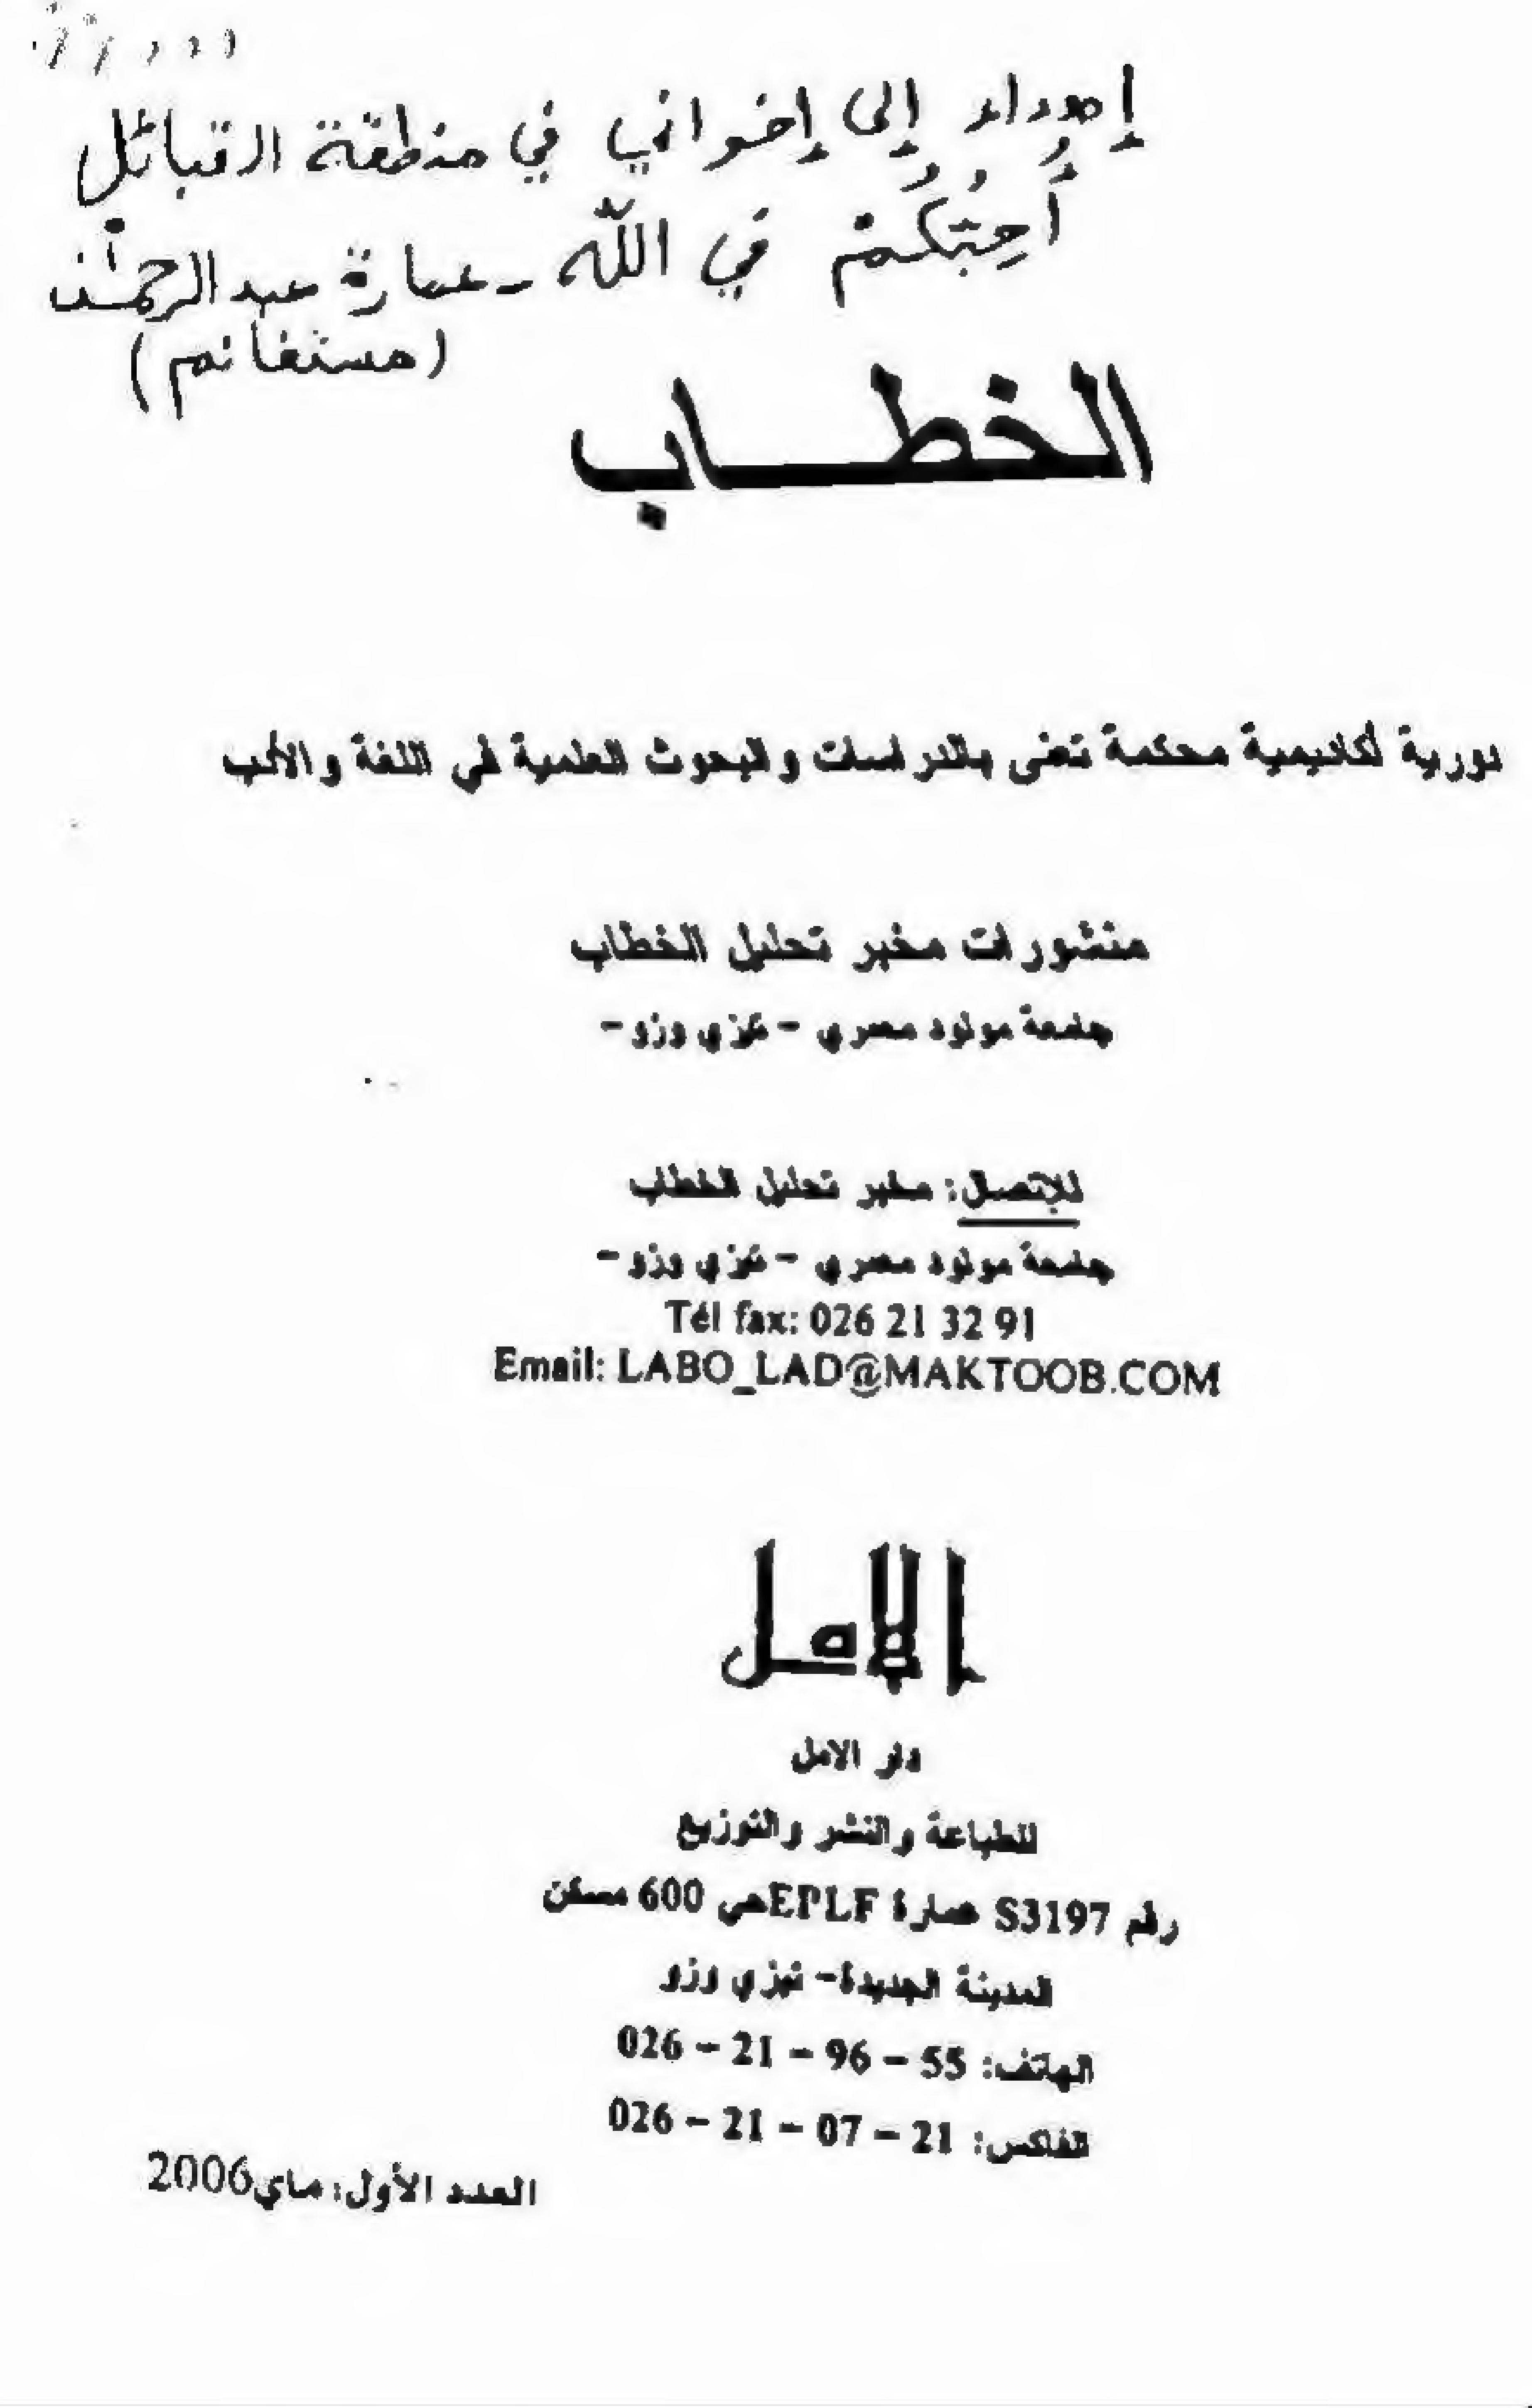 إهداء إلى إخواني في منطقة القبائل
أُحِبُّكُمْ في اللّه - عمارة عبد الرحمٰن
(مستغانم)
الخطــاب
دورية أكاديمية محكمة تعنى بالدراسات والبحوث العلمية في اللغة والأدب
منشورات مخبر تحليل الخطاب
جامعة مولود معمري - تيزي وزو -
للإتصال: مخبر تحليل الخطاب
جامعة مولود معمري - تيزي وزو -
Tél fax: 026 21 32 91
Email: LABO_LAD@MAKTOOB.COM
الامل
دار الامل
للطباعة والنشر والتوزيع
رقم S3197 عمارة EPLFحي 600 مسكن
المدينة الجديدة- تيزي وزو
الهاتف: 55 – 96 – 21 – 026
الفاكس: 21 – 07 – 21 – 026
العدد الأول: ماي2006